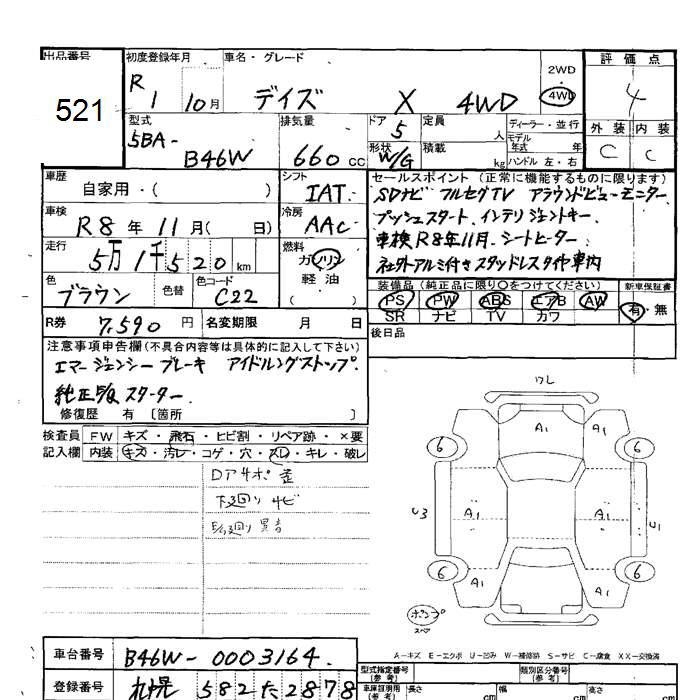 出品番号
521
初度登録年月
R 1 10月
車名・グレード
デイズ X 4WD
2WD
・
4WD
評価点
4
型式
5BA-
B46W
排気量
660 cc
ドア 5
形状 W/G
定員 人
積載 kg
ディーラー・並行
モデル年式 年
ハンドル 左・右
外装 内装
C C
車歴
自家用・( )
シフト
IAT
セールスポイント (正常に機能するものに限ります)
SDナビ フルセグTV アラウンドビューモニター
プッシュスタート、インテリジェントキー、
車検R8年11月、シートヒーター
社外アルミ付きスタッドレスタイヤ車内
車検
R8年 11月( 日)
冷房
AAC
走行
5万1千520km
燃料
ガソリン
・
軽油
( )
色
ブラウン
色替
色コード
C22
装備品 (純正品に限り○をつけてください)
PS PW ABS エアB AW
SR ナビ TV カワ
新車保証書
有・無
R券 7,590円
名変期限 月 日
後日品
注意事項申告欄(不具合内容等は具体的に記入して下さい)
エマージェンシーブレーキ アイドリングストップ、
純正 スターター
修復歴 有 〔箇所 〕
検査員
記入欄
FW キズ・飛石・ヒビ割・リペア跡・×要
内装 キズ・汚レ・コゲ・穴・スレ・キレ・破レ
Dアサポ
下廻りサビ
異音
ワレ
A1 A1
6 6
U3 A1 A1 U1
6 6
A1 A1
ポンプ
スペア
A−キズ E−エクボ U−凹み W−補修跡 S−サビ C−腐食 XX−交換済
車台番号 B46W-0003164
登録番号 札幌 582 た 2878
型式指定番号
(参考)
類別区分番号
(参考)
車庫証明用
(参考)
長さ cm
幅 cm
高さ cm